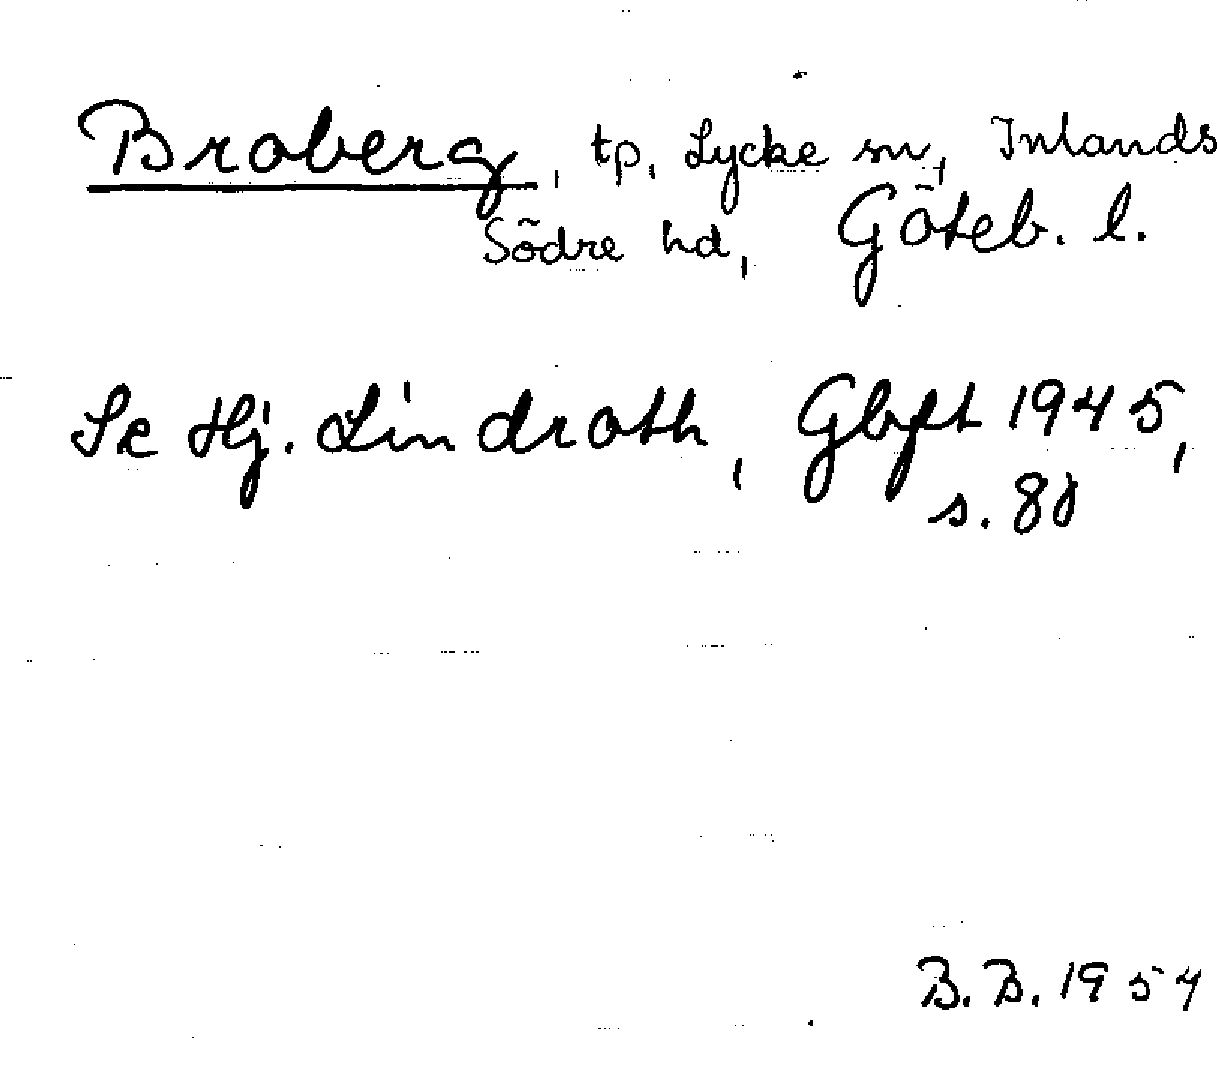 Broberg, tp, Lycke sn, Inlands
Södre hd, Göteb. l.
Se Hj. Lindroth, Gbgft 1945,
s. 80
B. B. 1954